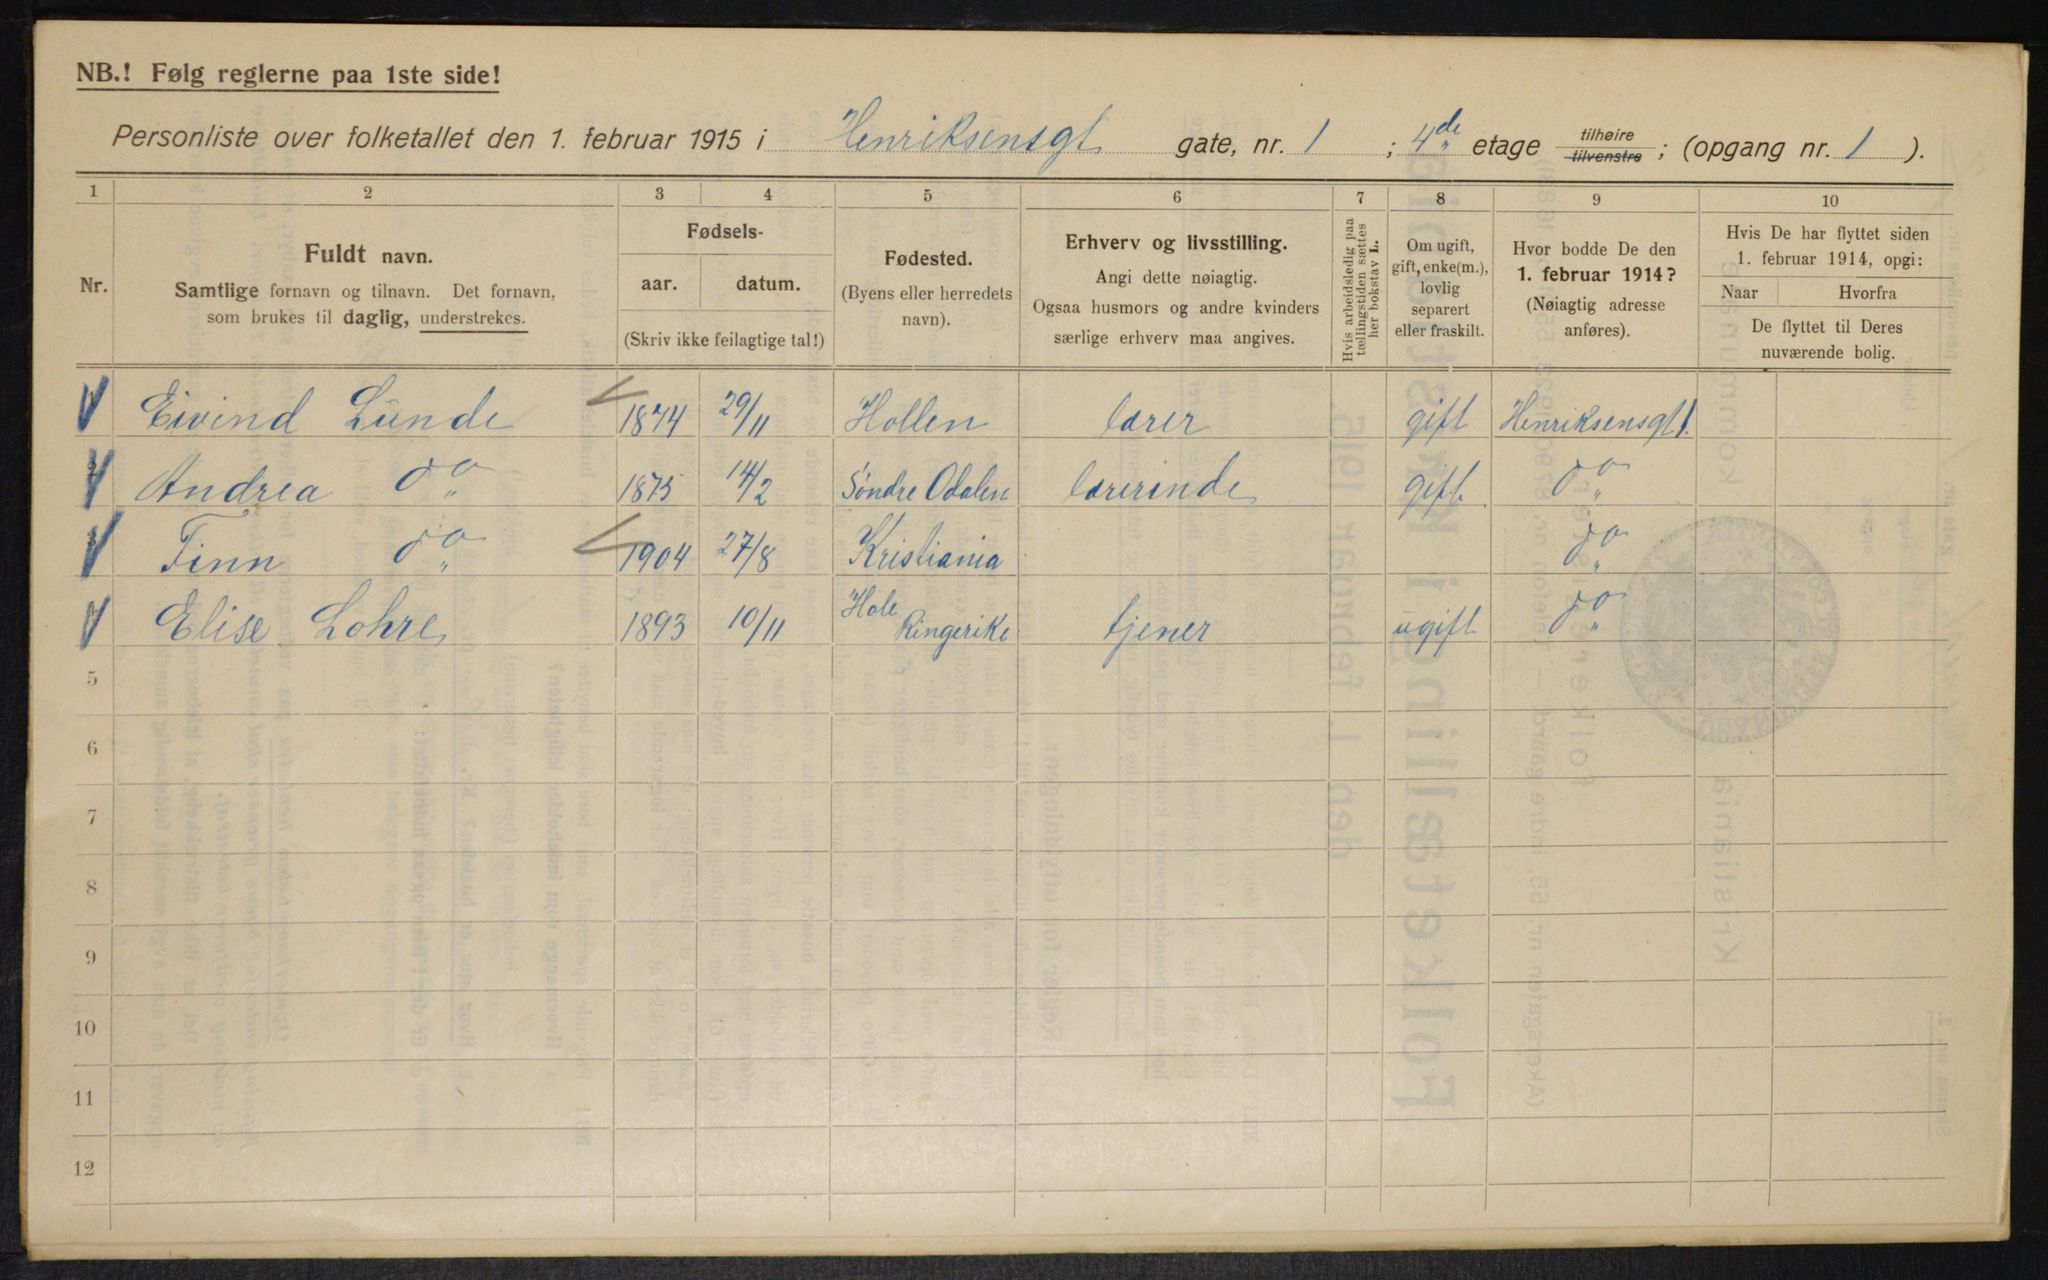 NB.! Følg reglerne paa 1ste side!
Personliste over folketallet den 1. februar 1915 i Henriksensgt gate, nr. 1 ; 4de etage tilhøire tilvenstre ; (opgang nr. 1 ).
1 2 3 4 5 6 7 8 9 10
Nr.
Fuldt navn.
Samtlige fornavn og tilnavn. Det fornavn,
som brukes til daglig, understrekes.
Fødsels-
aar. datum.
(Skriv ikke feilagtige tal!)
Fødested.
(Byens eller herredets
navn).
Erhverv og livsstilling.
Angi dette nøiagtig.
Ogsaa husmors og andre kvinders
særlige erhverv maa angives.
Hvis arbeidsledig paa
tællingstiden sættes
her bokstav L.
Om ugift,
gift, enke(m.),
lovlig
separert
eller fraskilt.
Hvor bodde De den
1. februar 1914?
(Nøiagtig adresse
anføres).
Hvis De har flyttet siden
1. februar 1914, opgi:
Naar Hvorfra
De flyttet til Deres
nuværende bolig.
Eivind Lunde 1874 29/11 Hollen lærer gift Henriksensgt 1.
Andrea do 1875 14/2 Søndre Odalen lærerinde gift do
Finn do 1904 27/8 Kristiania do
Elise Lohre 1893 10/11 Hole Ringerike tjener ugift do
5
6
7
8
9
10
11
12